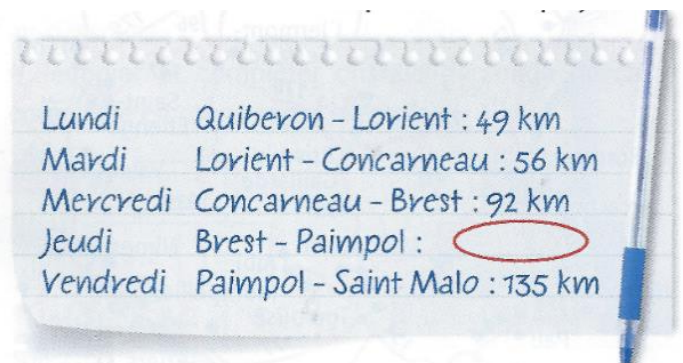 Lundi Quiberon - Lorient : 49 km
Mardi Lorient - Concarneau : 56 km
Mercredi Concarneau - Brest : 92 km
Jeudi Brest - Paimpol :
Vendredi Paimpol - Saint Malo : 135 km